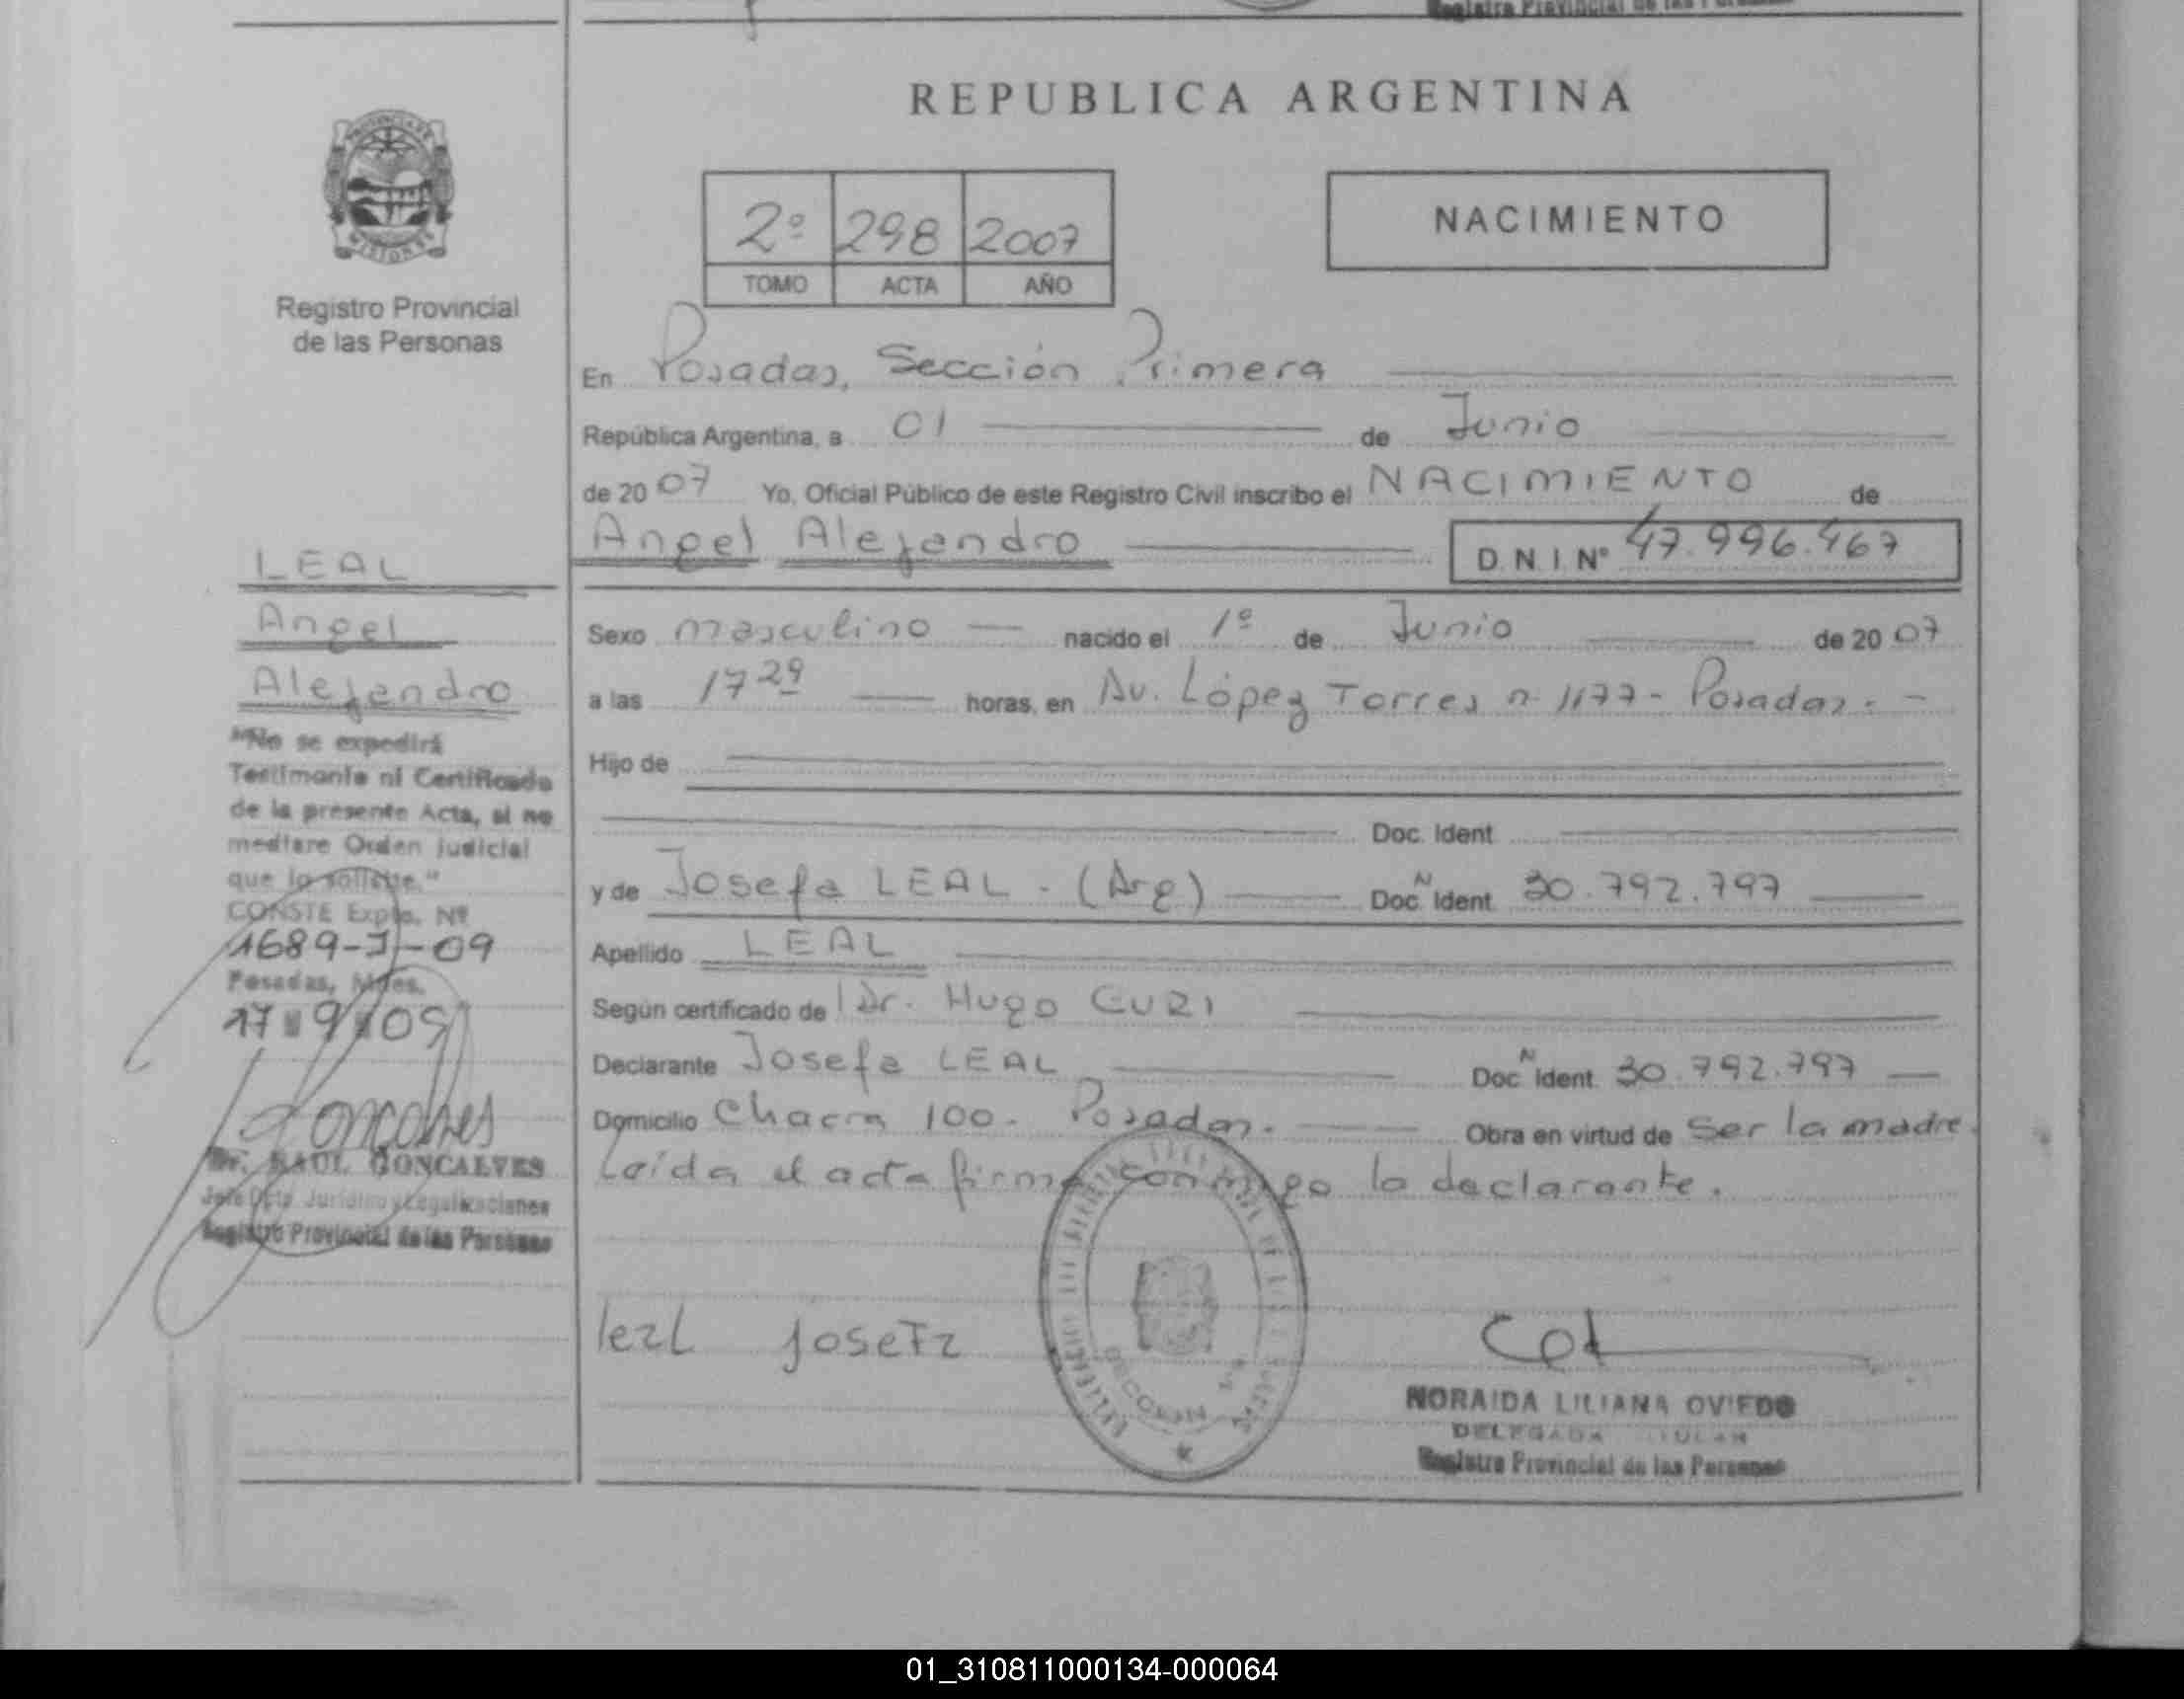 REPUBLICA ARGENTINA
2º 298 2007
TOMO ACTA AÑO
NACIMIENTO
Registro Provincial
de las Personas
En Posadas, Sección Primera
República Argentina, a 01 de Junio
de 2007 Yo, Oficial Público de este Registro Civil inscribo el NACIMIENTO de
Angel Alejandro D.N.I. Nº 47.996.467
Sexo masculino nacido el 1º de Junio de 2007
a las 17 29 horas, en Av. López Torres n 1177 - Posadas. -
Hijo de
Doc. Ident.
y de Josefa LEAL - (Arg) Doc. N Ident. 30.792.797
Apellido LEAL
Según certificado de Dr. Hugo CURI
Declarante Josefa LEAL Doc. N Ident. 30.792.797
Domicilio Chacra 100 - Posadas. Obra en virtud de Ser la madre.
Leída el acta firma conmigo la declarante.
leal josefa
NORAIDA LILIANA OVIEDO
DELEGADA TITULAR
Registro Provincial de las Personas
LEAL
Angel
Alejandro
"No se expedirá
Testimonio ni Certificado
de la presente Acta, si no
mediare Orden judicial
que lo solicite."
CONSTE Expte. Nº
1689-J-09
Posadas, Mnes.
17 9 09
Goncalves
Dr. RAUL GONCALVES
Jefe Dpto. Jurídico y Legalizaciones
Registro Provincial de las Personas
01_310811000134-000064